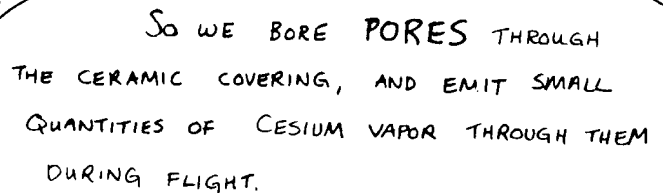 SO WE BORE PORES THROUGH
THE CERAMIC COVERING, AND EMIT SMALL
QUANTITIES OF CESIUM VAPOR THROUGH THEM
DURING FLIGHT.